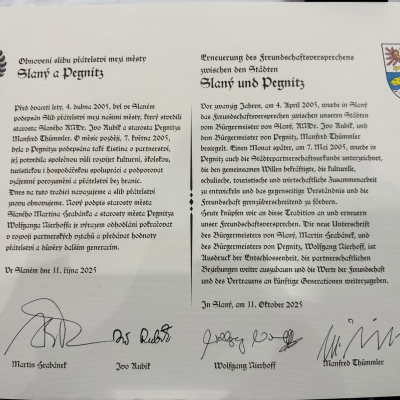 Obnovení slibu přátelství mezi městy
Slaný a Pegnitz
Před dvaceti lety, 4. dubna 2005, byl ve Slaném
podepsán Slib přátelství mezi našimi městy, který stvrdili
starosta Slaného RNDr. Ivo Rubík a starosta Pegnitzu
Manfred Thümmler. O měsíc později, 7. května 2005,
byla v Pegnitzu podepsána také Listina o partnerství,
jež potvrdila společnou vůli rozvíjet kulturní, školskou,
turistickou i hospodářskou spolupráci a podporovat
vzájemné porozumění a přátelství bez hranic.
Dnes na tuto tradici navazujeme a slib přátelství
znovu obnovujeme. Nový podpis starosty města
Slaného Martina Hrabánka a starosty města Pegnitzu
Wolfganga Nierhoffa je výrazem odhodlání pokračovat
v rozvoji partnerských vztahů a předávat hodnoty
přátelství a důvěry dalším generacím.
Ve Slaném dne 11. října 2025
Martin Hrabánek
Ivo Rubík
Erneuerung des Freundschaftsversprechens
zwischen den Städten
Slaný und Pegnitz
Vor zwanzig Jahren, am 4. April 2005, wurde in Slaný
das Freundschaftsversprechen zwischen unseren Städten
vom Bürgermeister von Slaný, RNDr. Ivo Rubík, und
dem Bürgermeister von Pegnitz, Manfred Thümmler
besiegelt. Einen Monat später, am 7. Mai 2005, wurde in
Pegnitz auch die Städtepartnerschaftsurkunde unterzeichnet,
die den gemeinsamen Willen bekräftigte, die kulturelle,
schulische, touristische und wirtschaftliche Zusammenarbeit
zu entwickeln und das gegenseitige Verständnis und die
Freundschaft grenzüberschreitend zu fördern.
Heute knüpfen wir an diese Tradition an und erneuern
unser Freundschaftsversprechen. Die neue Unterschrift
des Bürgermeisters von Slaný, Martin Hrabánek, und
des Bürgermeisters von Pegnitz, Wolfgang Nierhoff, ist
Ausdruck der Entschlossenheit, die partnerschaftlichen
Beziehungen weiter auszubauen und die Werte der Freundschaft
und des Vertrauens an künftige Generationen weiterzugeben.
In Slaný, am 11. Oktober 2025
Wolfgang Nierhoff
Manfred Thümmler